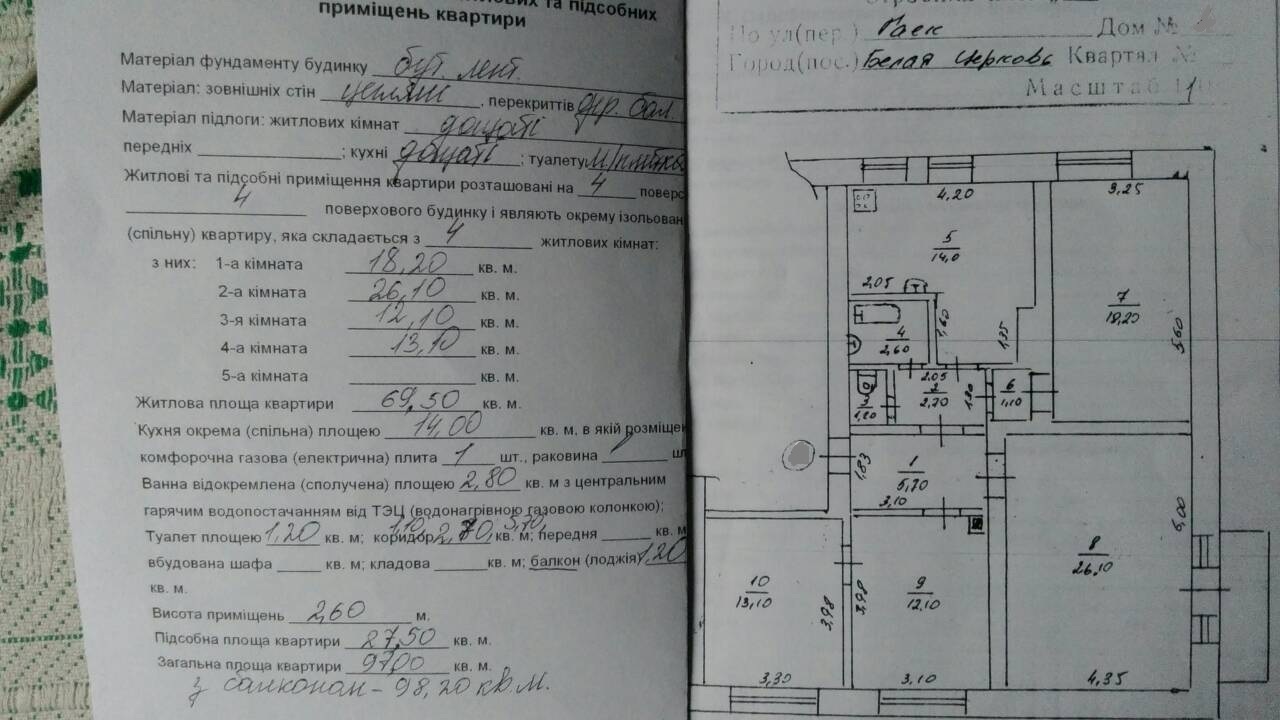 житлових та підсобних
приміщень квартири
Матеріал фундаменту будинку бут. лент.
Матеріал: зовнішніх стін цеглян, перекриттів дер. бал.
Матеріал підлоги: житлових кімнат дощаті
передніх ; кухні дощаті ; туалету м/плитка
Житлові та підсобні приміщення квартири розташовані на 4 поверс
4 поверхового будинку і являють окрему ізольован
(спільну) квартиру, яка складається з 4 житлових кімнат:
з них: 1-а кімната 18,20 кв. м.
2-а кімната 26,10 кв. м.
3-я кімната 12,10 кв. м.
4-а кімната 13,10 кв. м.
5-а кімната кв. м.
Житлова площа квартири 69,50 кв. м.
Кухня окрема (спільна) площею 14,00 кв. м, в якій розміщен
комфорочна газова (електрична) плита 1 шт., раковина 1 шт
Ванна відокремлена (сполучена) площею 2,80 кв. м з центральним
гарячим водопостачанням від ТЭЦ (водонагрівною газовою колонкою);
Туалет площею 1,20 кв. м; коридор 1,10, 2,70, 5,70, кв. м; передня кв. м;
вбудована шафа кв. м; кладова кв. м; балкон (лоджія) 1,20
кв. м.
Висота приміщень 2,60 м.
Підсобна площа квартири 27,50 кв. м.
Загальна площа квартири 97,00 кв. м.
з балконом - 98,20 кв м.
По ул(пер.) Гаек Дом №
Город(пос.) Белая Церковь Квартал №
Масштаб 1:10
4,20
3,25
5
14,0
2,05
7
18,20
5,60
4
2,60
1,60
1,35
2,05
2
2,70
1,20
3
1,20
6
1,10
1,83
1
5,70
3,10
6,00
8
26,10
10
13,10
3,98
3,98
9
12,10
3,30
3,10
4,35